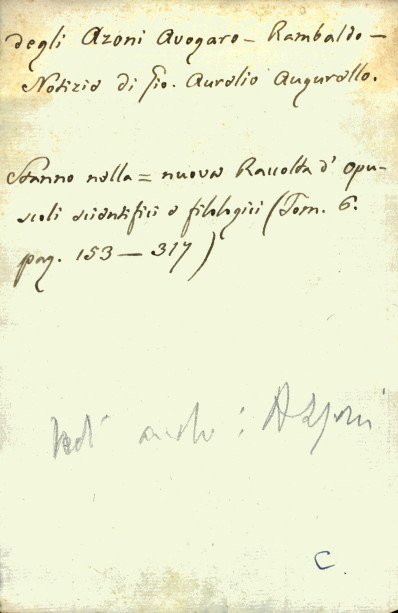 degli Azoni Avogaro - Rambaldo -
Notizie di Gio. Aurelio Augurello.
Stanno nella = nuova Raccolta d' opu-
scoli scientifici e filologici (Tom. 6.
pag. 153 — 317)
Vedi anche : Azzoni
C